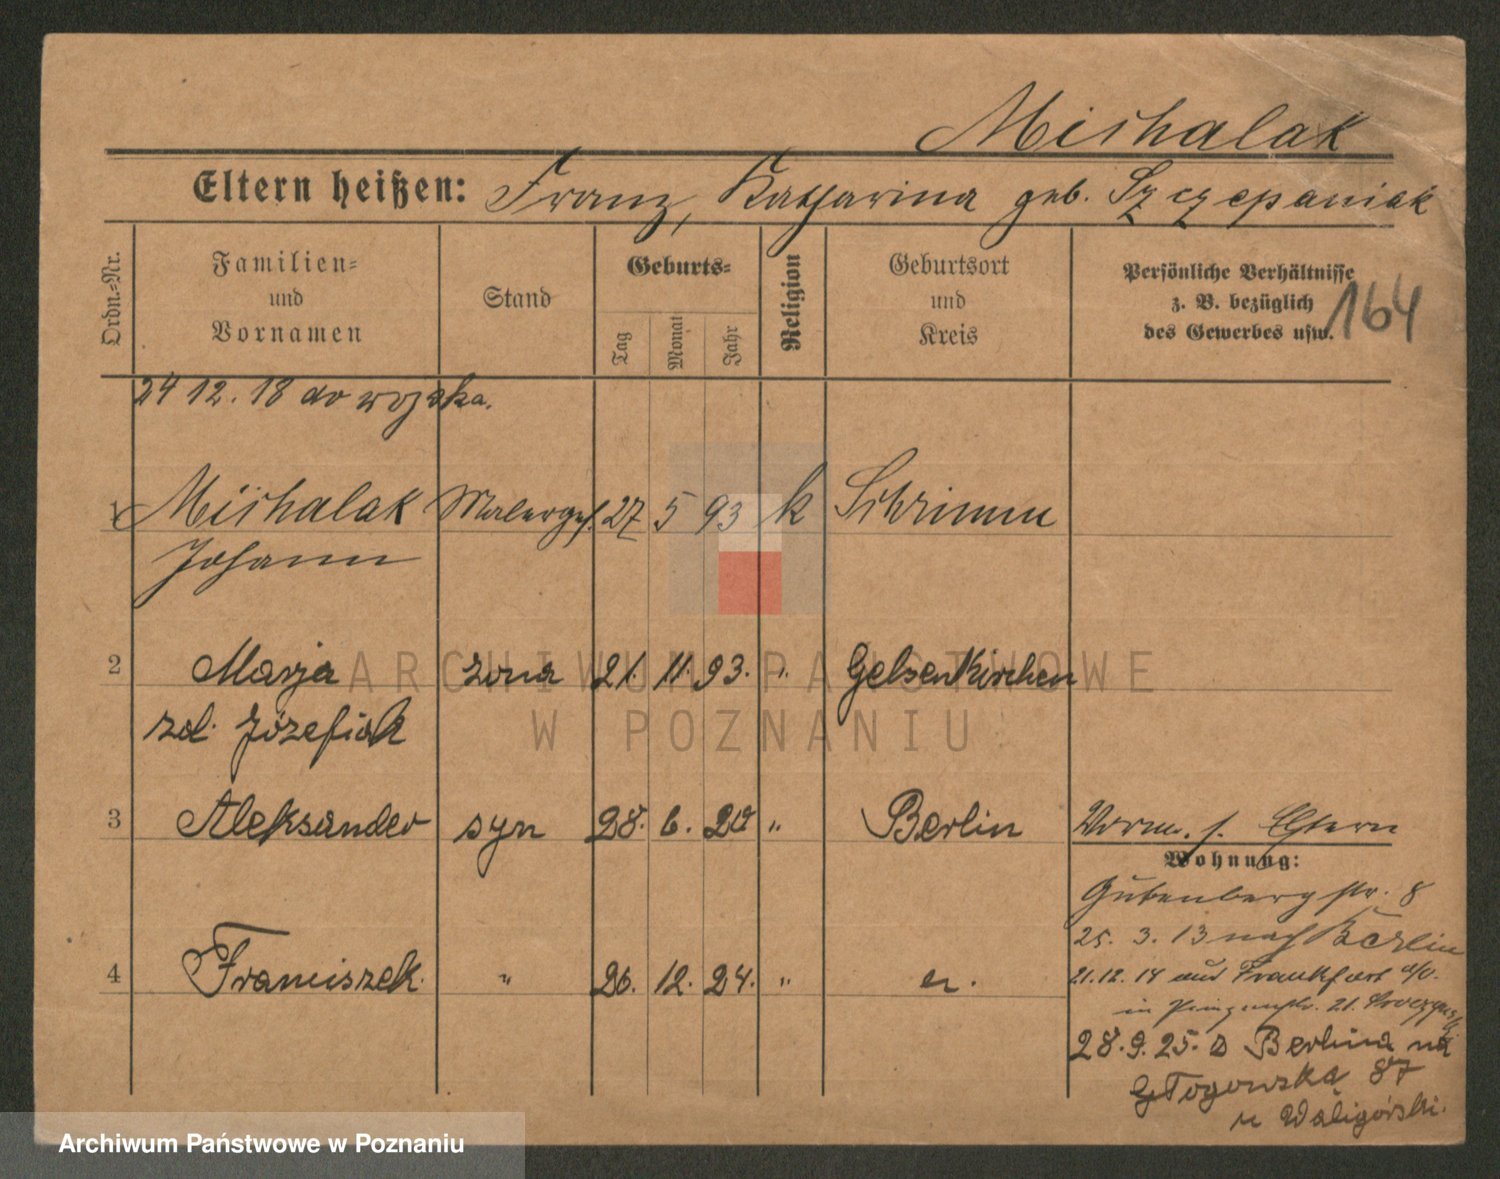 Mishalak
Eltern heißen: Franz, Katharina geb. Szczepaniak
Ordn.=Nr.
Familien= und Vornamen
Stand
Geburts=
Tag
Monat
Jahr
Religion
Geburtsort und Kreis
Persönliche Verhältnisse z. B. bezüglich des Gewerbes usw.
164
24 12. 18 do wojska.
1 Mishalak Malerges. 27 5 93 k Schrimm
Johann
2 Marja żona 21. 11. 93. " Gelsenkirchen
zd. Józefiak
3 Aleksander syn 28. 6. 20 " Berlin
4 Franciszek. " 26. 12. 24. " "
Worm. s. Eltern
Wohnung:
Gutenbergstr. 8
25. 3. 13 nach Berlin
21.12.18 aus Frankfurt a/O.
in 21.
28.9.25. z Berlina na
Głogowską 87
u Waligórski.
ARCHIWUM PAŃSTWOWE
W POZNANIU
Archiwum Państwowe w Poznaniu